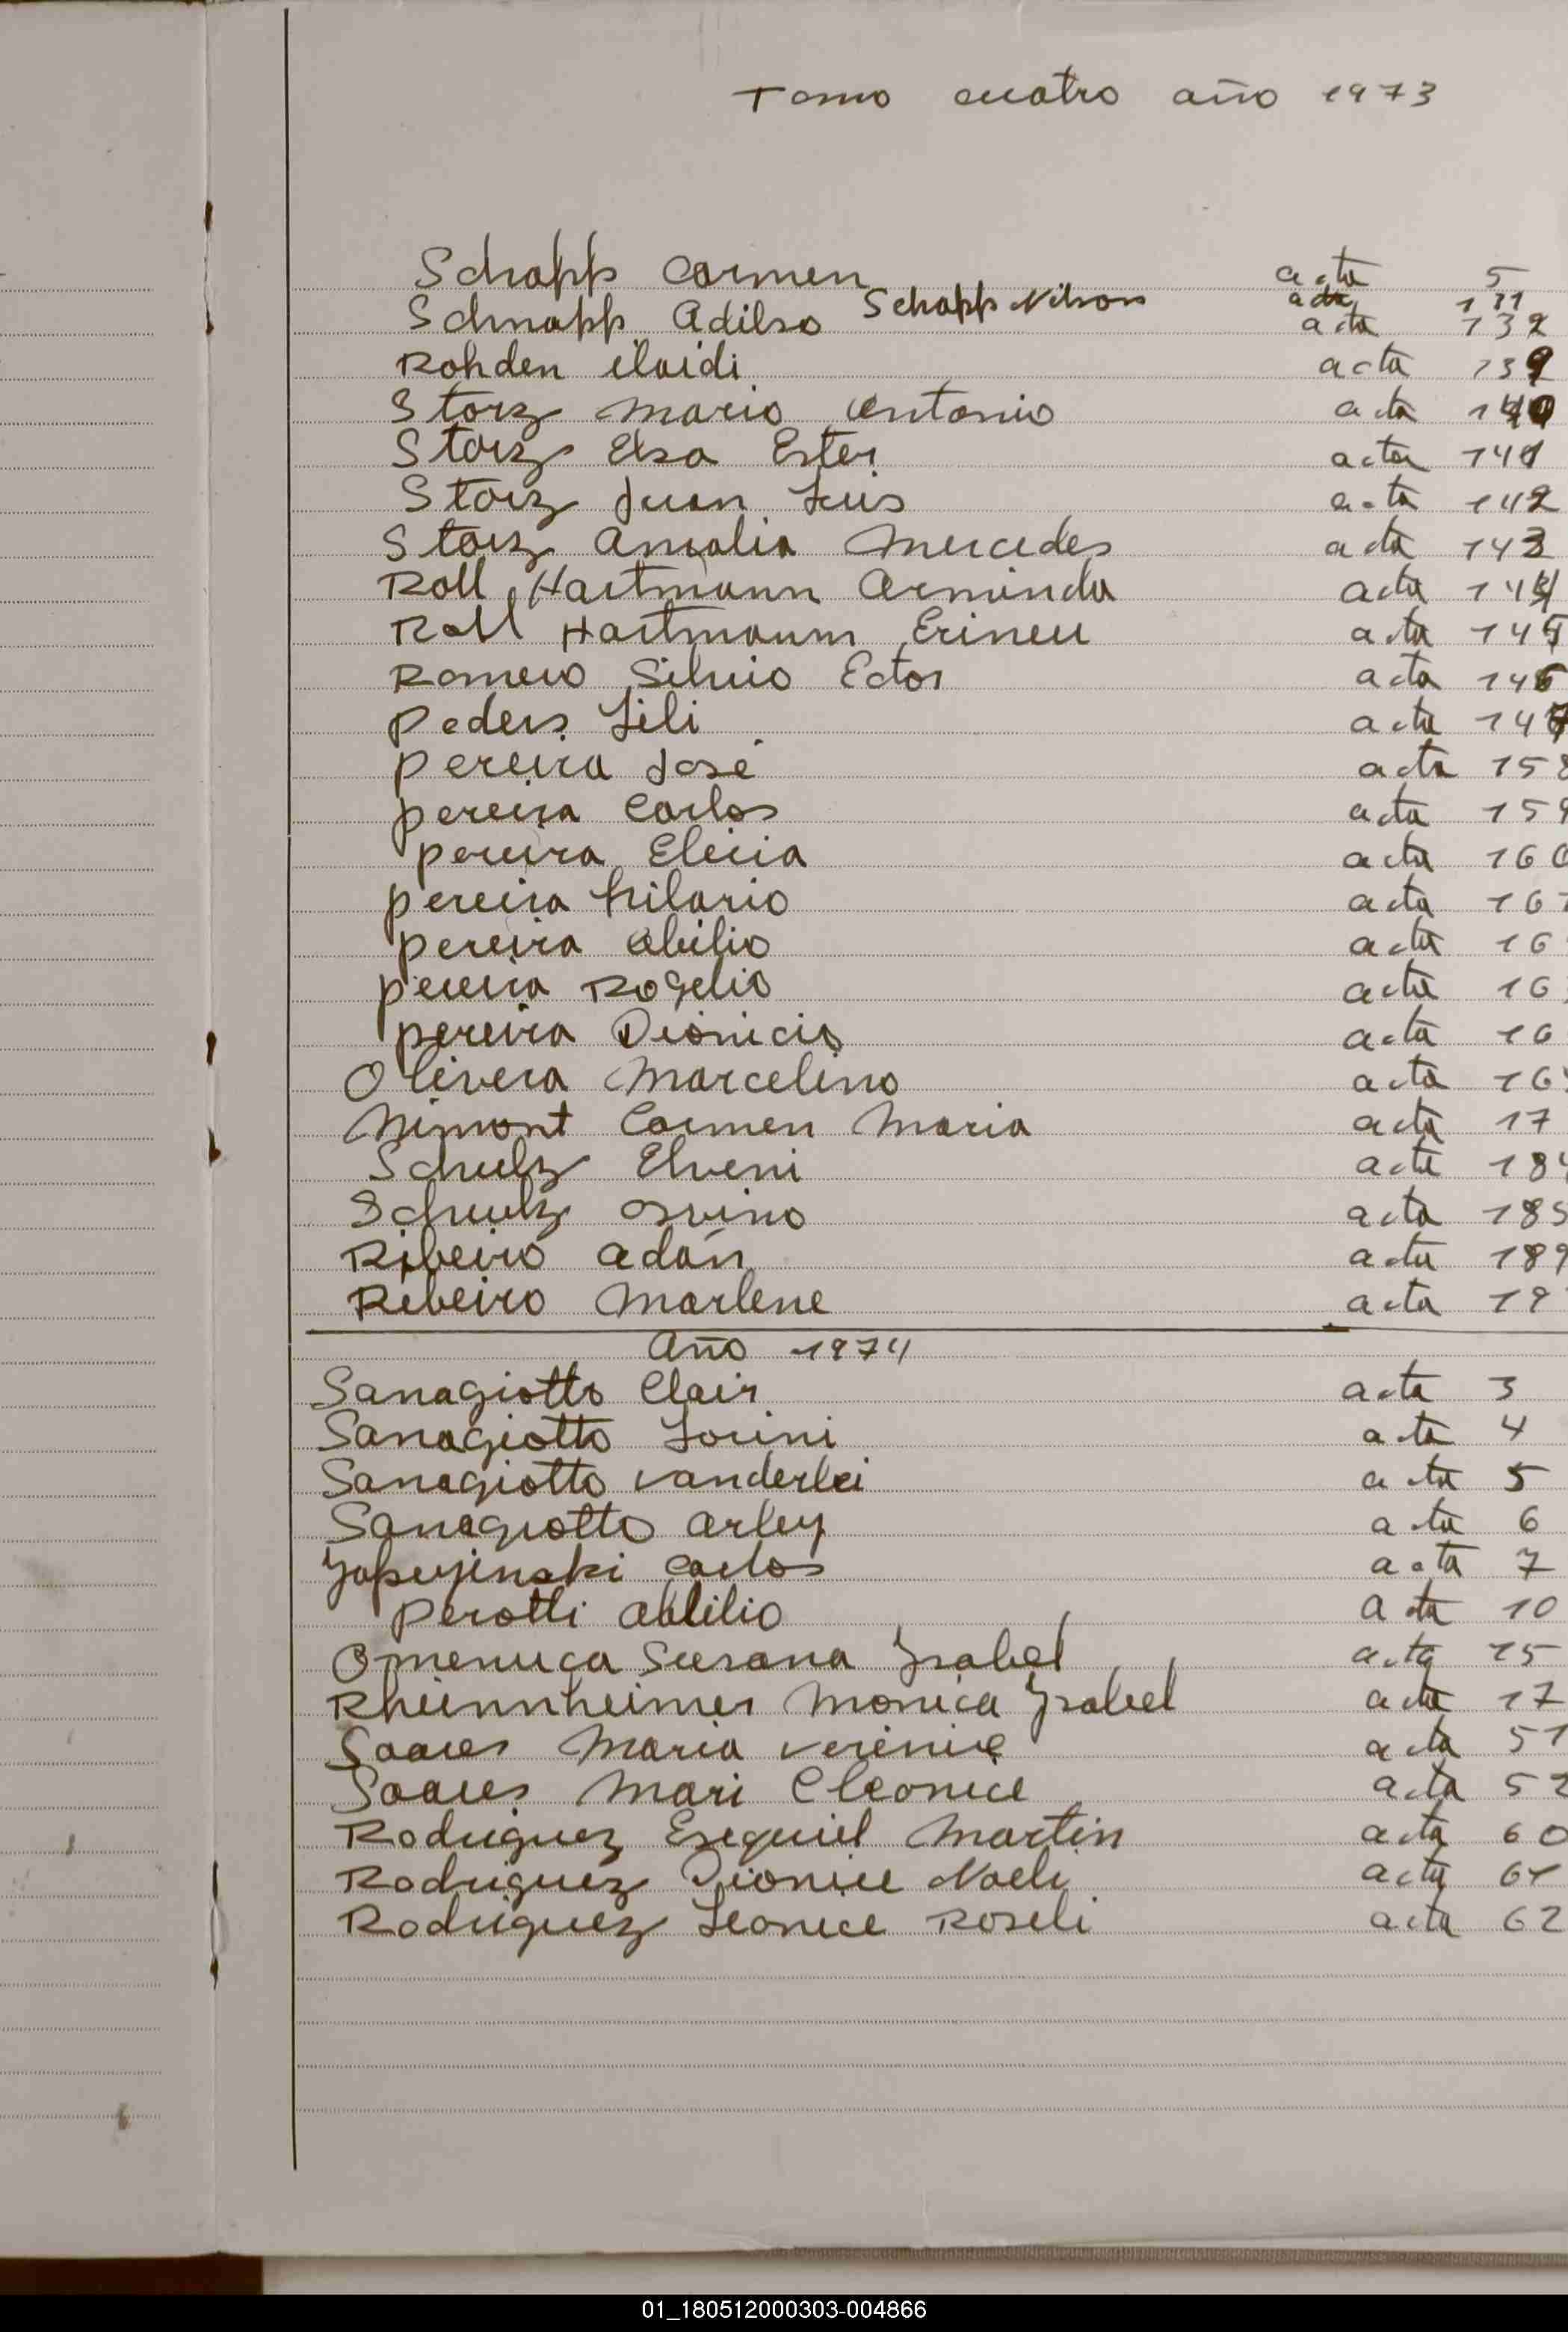 Tomo cuatro año 1973
Schapp Carmen acta 5
Schapp Nilson acta 131
Schnapp Adilso acta 132
Rohden ilaidi acta 139
Storz Mario Antonio acta 140
Storz Elsa Ester acta 141
Storz Juan Luis acta 142
Storz Amalia Mercedes acta 143
Roll Hartmann Arminda acta 144
Roll Hartmann Erineu acta 145
Romero Silvio Ector acta 146
Peders Lili acta 147
pereira José acta 158
pereira Carlos acta 159
pereira Elecia acta 160
pereira hilario acta 161
pereira Abilio acta 16
pereira Rogelio acta 16
pereira Dionicio acta 16
Olivera Marcelino acta 16
Nimont Carmen Maria acta 17
Schulz Elveni acta 184
Schulz Osvino acta 185
Ribeiro adán acta 189
Ribeiro Marlene acta 19
Año 1974
Sanagiotto Clair acta 3
Sanagiotto Lorini acta 4
Sanagiotto Vanderlei acta 5
Sanagiotto Arley acta 6
Carlos acta 7
Perotti Ablilio acta 10
Omenuca Susana Ysabel acta 15
Rheinnheimer Monica Ysabel acta 17
Soares Maria Verenice acta 51
Soares Mari Cleonice acta 52
Rodriguez Esequiel Martin acta 60
Rodriguez Dionice Noeli acta 61
Rodriguez Leonice Roseli acta 62
01_180512000303-004866